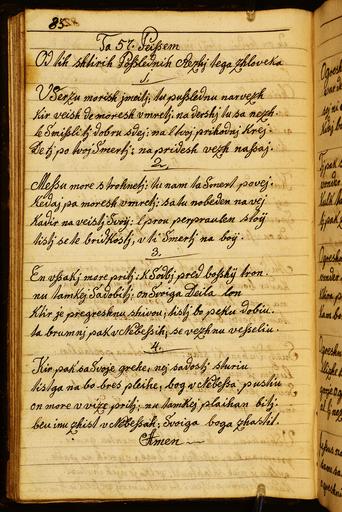 85
Ta 57. Peissem
Od tih shtirih Posslednih Rezhy tega zhloveka
1.
V Serzu morish jmeiti, tu pusslednu narvezh
Kir veish de moresh vmreti, na
le Smissli ti dobru sdej; ma l tvoj prihodni Krej.
De ti po tvoj Smerti; na pridesh vezh nasaj.
2.
Messu more strohneti; tu nam ta Smert povej.
Kedaj pa moresh vmreti; sa tu nobeden na vej
Kadir na veisti Svoj; l prou perprauten stoij
tisti se te bridkosti, v ti Smerti na boij.
3.
En vssaki more priti; K Sodbi pred bosshij tron.
nu tamkej Sadobiti; on Svoiga Deila lon
Ktir je pregresknu shivou, tisti bo peku dobiu.
ta brumni pak v Nebessih, se vezhnu vesseliu.
4.
Kir pak sa Svoje grehe, nej sadosti sturiu
tistga na bo bres pleihe, bog v Nebessa pustiu
on more v vize priti, nu tamkej plaihan biti,
v Nebessah, Svoiga boga zhastil.
Amen